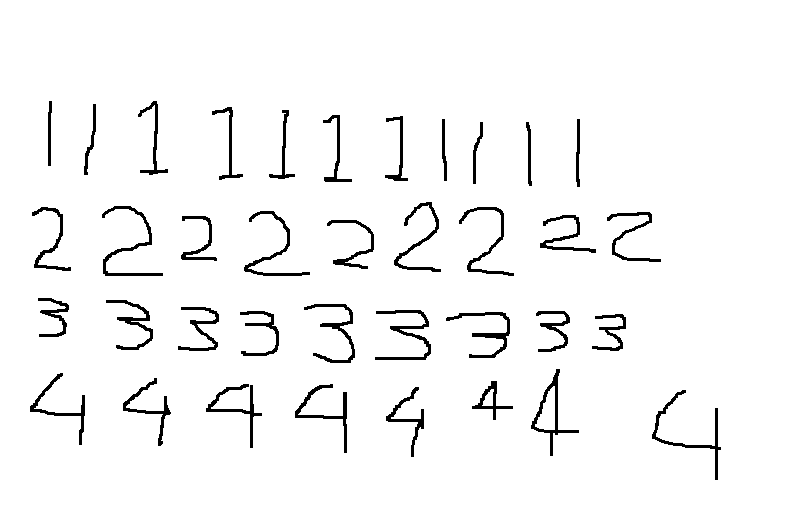 1 1 1 1 1 1 1 1 1 1 1
2 2 2 2 2 2 2 2 2
3 3 3 3 3 3 3 3 3
4 4 4 4 4 4 4 4